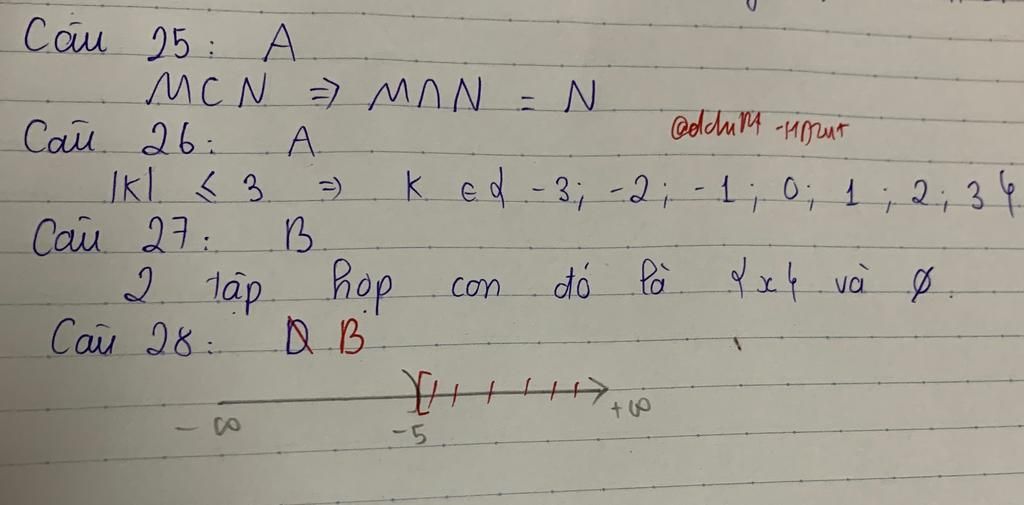 Câu 25: A
M⊂N ⇒ M∩N = N
Câu 26: A
|K| ≤ 3 ⇒ K ∈ { -3; -2; -1; 0; 1; 2; 3 }
Câu 27: B
2 tập hợp con đó là {x} và ∅.
Câu 28: B
-∞ -5 +∞